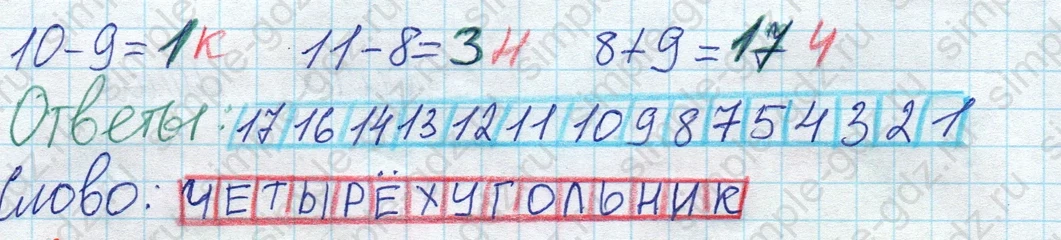 10-9=1к 11-8=3н 8+9=17ч
Ответы: 17 16 14 13 12 11 10 9 8 7 5 4 3 2 1
Слово: ЧЕТЫРЁХУГОЛЬНИК